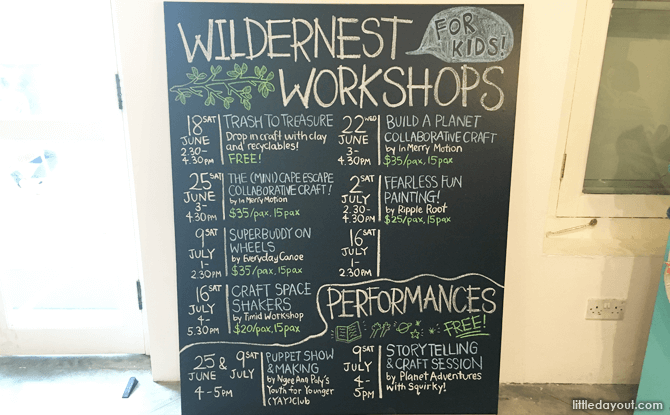 WILDERNEST
FOR
KIDS!
WORKSHOPS
18 SAT
JUNE
2.30-
4.30PM
TRASH TO TREASURE
Drop in craft with clay
and recyclables!
FREE!
22 WED
JUNE
3-
4.30PM
BUILD A PLANET
COLLABORATIVE CRAFT
by In Merry Motion
$35/pax, 15pax
25 SAT
JUNE
3-
4.30PM
THE (MINI) CAPE ESCAPE
COLLABORATIVE CRAFT!
by In Merry Motion
$35/pax, 15pax
2 SAT
JULY
2.30-
4.30PM
FEARLESS FUN
PAINTING!
by Ripple Root
$25/pax, 15pax
9 SAT
JULY
1-
2.30PM
SUPERBUDDY ON
WHEELS
by Everyday Canoe
$35/pax, 15pax
16 SAT
JULY
1-
2.30PM
16 SAT
JULY
4-
5.30PM
CRAFT SPACE
SHAKERS
by Timid Workshop
$20/pax, 15pax
PERFORMANCES
FREE!
25 & 9 SAT
JUNE JULY
4-5PM
PUPPET SHOW
& MAKING
by Ngee Ann Poly's
Youth for Younger
(YAY) Club
9 SAT
JULY
4-
5PM
STORYTELLING
& CRAFT SESSION
by Planet Adventures
with Squirky!
littledayout.com